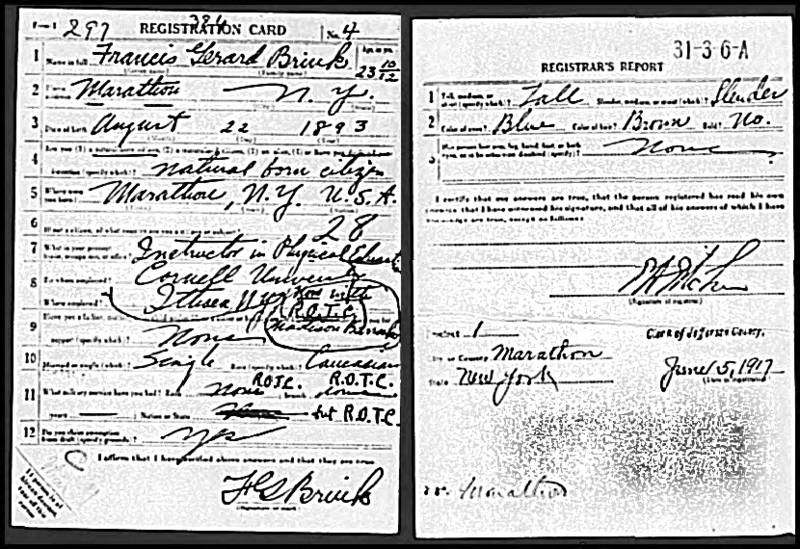 297
384
REGISTRATION CARD
No. 4
1 Name in full Francis Gerard Brink
(Given name) (Family name)
Age, in yrs. 23 10/12
2 Marathon N. Y.
3 Date of birth August 22 1893
4
natural born citizen
5 Marathon, N.Y. U.S.A.
6 If not a citizen, of what country are you a citizen or subject?
28
7 What is your present trade, occupation, or office? Instructor in Physical Education
8 By whom employed? Cornell University
Where employed? Ithaca N.Y. Now with
R.O.T.C.
Madison Barracks
9
support (specify which)? None
10 Married or single (which)? Single Race (specify which)? Caucasian
R.O.T.C. R.O.T.C.
11 What military service have you had? Rank None branch
years Nation or State but R.O.T.C.
12 Do you claim exemption from draft (specify grounds)? Yes
I affirm that I have verified above answers and that they are true
F G Brink
(Signature or mark)
31-3-6-A
REGISTRAR'S REPORT
1 Tall, medium, or short (specify which)? Tall Slender, medium, or stout (which)? Slender
2 Color of eyes? Blue Color of hair? Brown Bald? No.
3 Has person lost arm, leg, hand, foot, or both eyes, or is he otherwise disabled (specify)? None
I certify that my answers are true, that the person registered has read his own answers, that I have witnessed his signature, and that all of his answers of which I have knowledge are true, except as follows:
(Signature of registrar)
Precinct 1
Clerk of Jefferson County.
City or County Marathon
State New York
June 5, 1917
(Date of registration)
Marathon